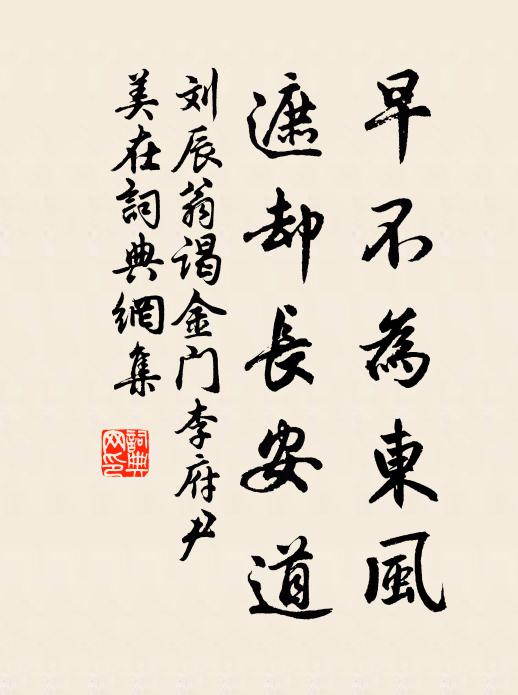 早不為東風
遮却長安道
刘辰翁谒金门李府尹
美在詞典網集
詞典网印